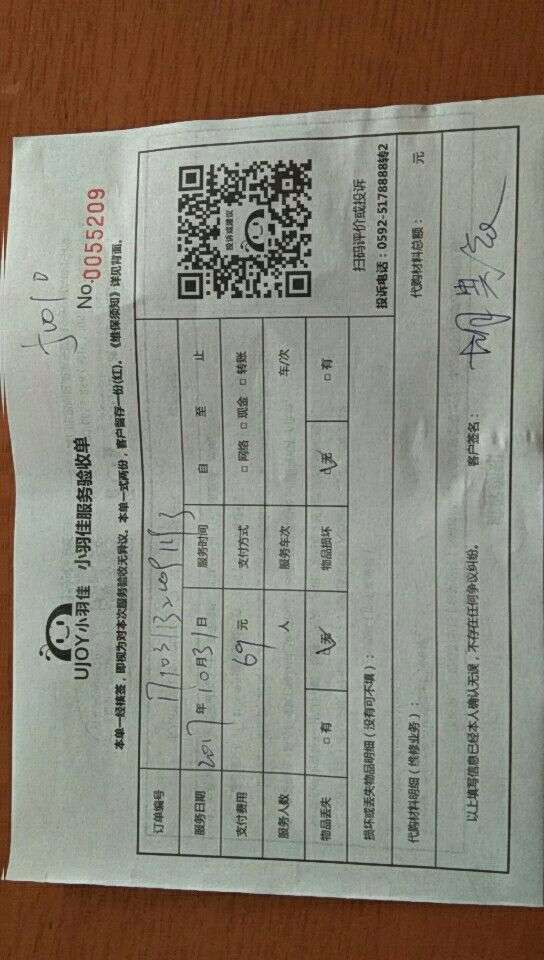 UJOY小羽佳 小羽佳服务验收单
No.0055209
本单一经核签，即视为对本次服务验收无异议。本单一式两份，客户留存一份(红)。《维保须知》详见背面。
订单编号
服务日期 2017年10月31日 服务时间 自 至 止
支付费用 69元 支付方式 □网络 □现金 □转账
服务人数 人 服务车次 车/次
物品丢失 □有 □无 物品损坏 □无 □有
投诉或建议
扫码评价或投诉
投诉电话：0592-5178888转2
损坏或丢失物品明细（没有可不填）：
代购材料明细（维修业务）： 代购材料总额： 元
以上填写信息已经本人确认无误，不存在任何争议纠纷。 客户签名：